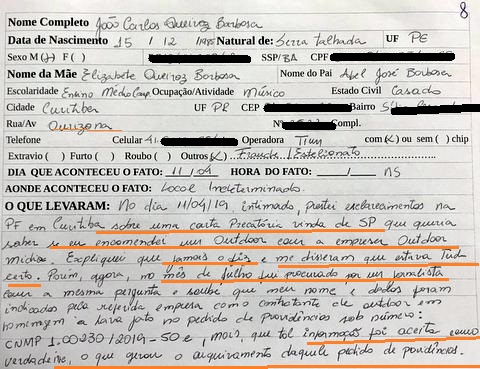 8
Nome Completo João Carlos Queiroz Barbosa
Data de Nascimento 15 / 12 / 1985 Natural de: Serra Talhada UF PE
Sexo M (x) F ( ) SSP/BA CPF
Nome da Mãe Elizabete Queiroz Barbosa Nome do Pai Abel José Barbosa
Escolaridade Ensino Médio Comp. Ocupação/Atividade Músico Estado Civil Casado
Cidade Curitiba UF PR CEP Bairro
Rua/Av Ourizona Nº Compl.
Telefone Celular 41- Operadora Tim com (x) ou sem ( ) chip
Extravio ( ) Furto ( ) Roubo ( ) Outros (x) Fraude / Estelionato
DIA QUE ACONTECEU O FATO: 11 / 04 / HORA DO FATO: / NS
AONDE ACONTECEU O FATO: Local Indeterminado.
O QUE LEVARAM: No dia 11/04/19 intimado, prestei esclarecimentos na
PF em Curitiba sobre uma carta Precatória vinda de SP que queria
saber se eu encomendei um Outdoor com a empresa Outdoor
mídias. Expliquei que jamais o fiz e me disseram que estava Tudo
certo. Porém, agora, no mês de julho fui procurado por um jornalista
com a mesma pergunta e soube que meu nome e dados foram
indicados pela referida empresa como contratante do outdoor em
homenagem a lava jato no pedido de providências sob número:
CNMP 1.00230/2019-50 e, mais, que tal informação foi aceita como
verdadeira, o que gerou o arquivamento daquele pedido de providências.